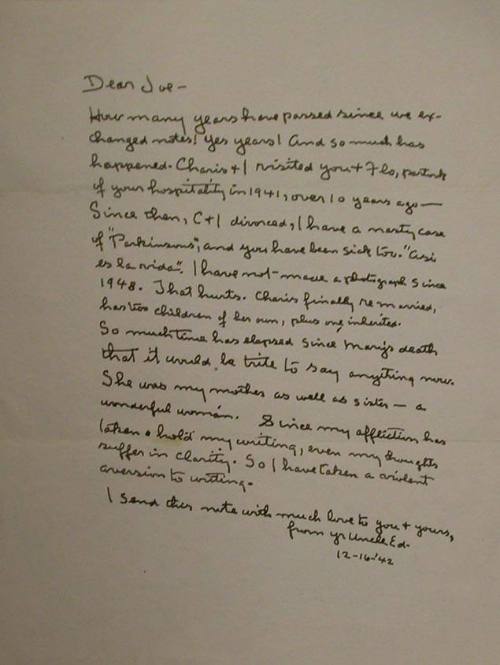 Dear Joe -
How many years have passed since we ex-
changed notes! Yes years! And so much has
happened. Charis + I visited you + Flo, partook
of your hospitality in 1941, over 10 years ago —
Since then, C + I divorced, I have a nasty case
of "Parkinsons", and you have been sick too. "Asi
es la vida". I have not made a photograph since
1948. That hurts. Charis finally re-married,
has two children of her own, plus one inherited.
So much time has elapsed since Mary's death
that it would be trite to say anything now.
She was my mother as well as sister — a
wonderful woman. Since my affliction has
taken a hold my writing, even my thoughts
suffer in clarity. So I have taken a violent
aversion to writing.
I send this note with much love to you + yours,
from yr Uncle Ed-
12-16-'42